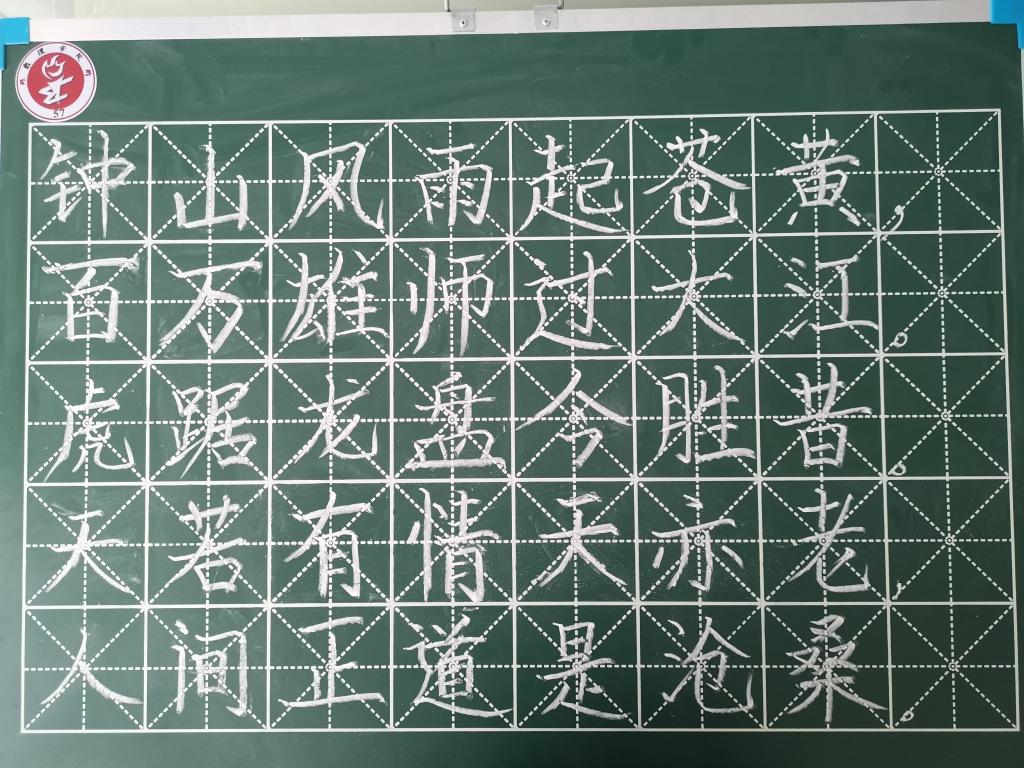 钟山风雨起苍黄，
百万雄师过大江。
虎踞龙盘今胜昔。
天若有情天亦老，
人间正道是沧桑。
57